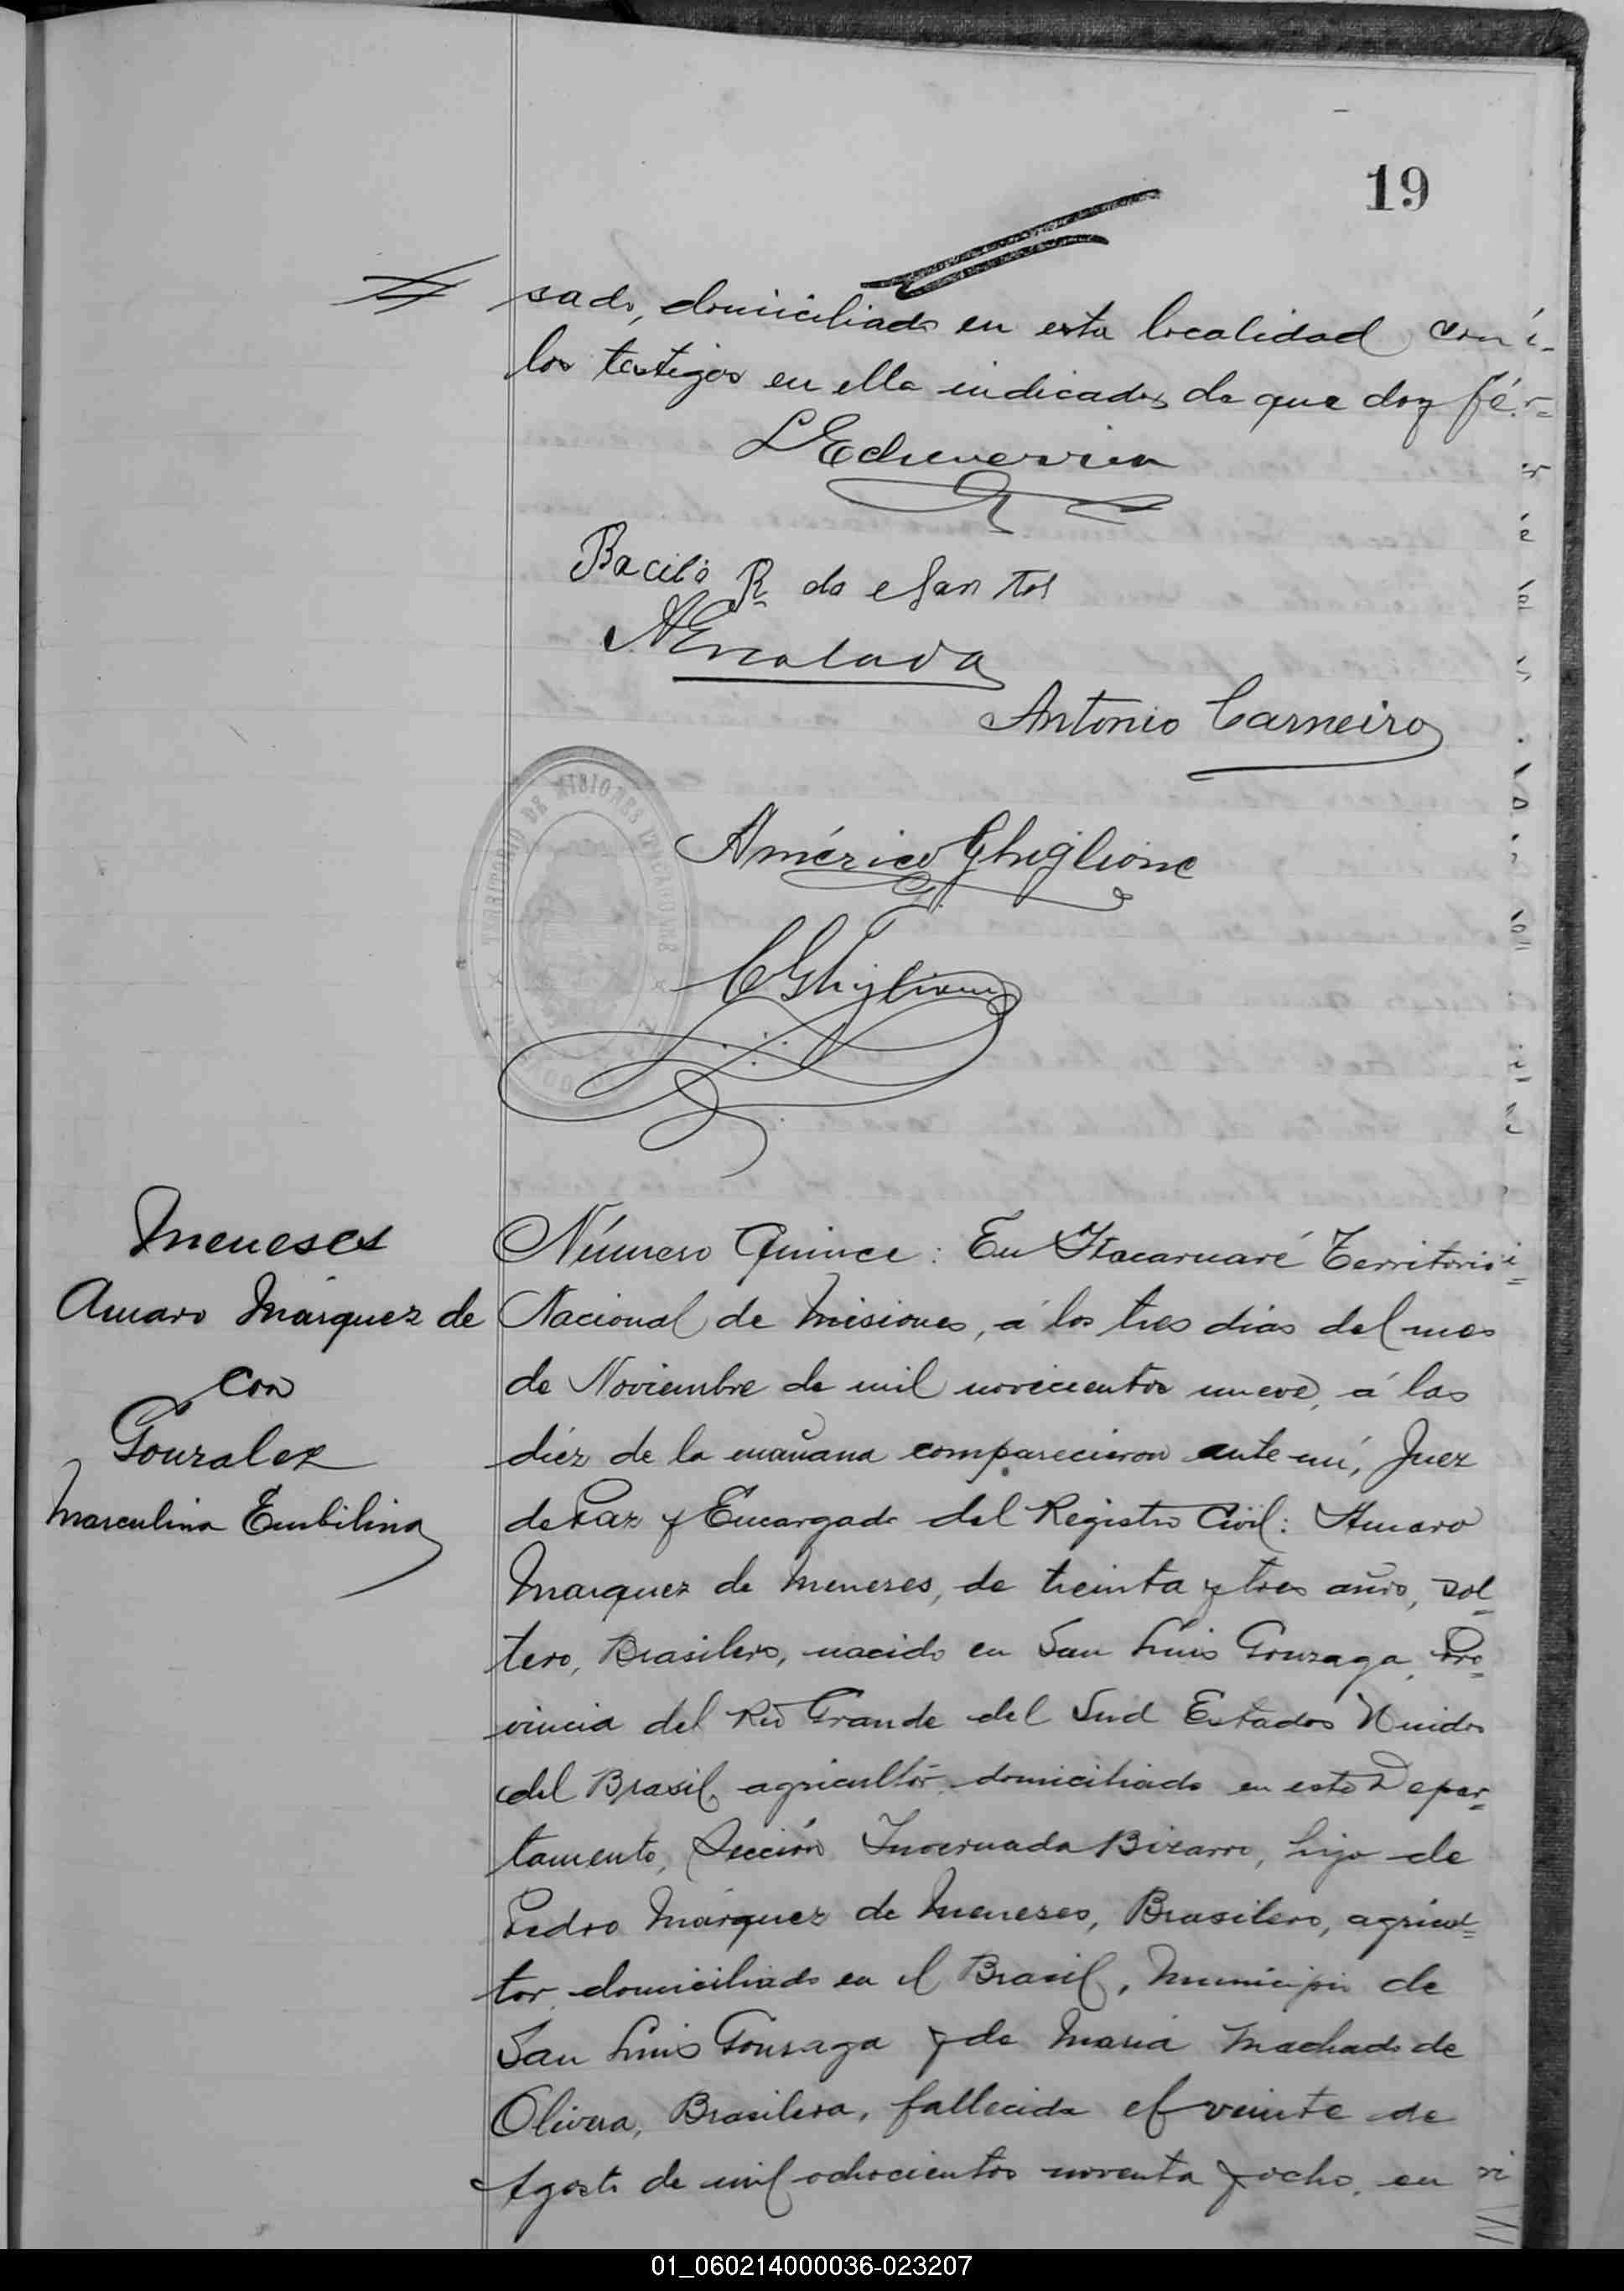 19
sado, domiciliado en esta localidad con
los testigos en ella indicados de que doy fé.
LEcheverria
Bacilio R do Santos
Antonio Carneiro
TERRITORIO DE MISIONES
Américo Ghiglione
CGhiglione
Meneses
Amaro Márquez de
con
Gonzalez
Marculina Embilina
Número Quince: En Itacaruaré Territorio
Nacional de Misiones, á los tres dias del mes
de Noviembre de mil novecientos nueve, á las
diéz de la mañana comparecieron ante mí, Juez
de Paz y Encargado del Registro Civil: Amaro
Marquez de Meneses, de treinta y tres años, sol=
tero, Brasilero, nacido en San Luis Gonzaga, Pro=
vincia del Rio Grande del Sud Estados Unidos
del Brasil, agricultor, domiciliado en este Depar=
tamento, Sección Invernada Bizarro, hijo de
Pedro Márquez de Meneses, Brasilero, agricul=
tor, domiciliado en el Brasil, Municipio de
San Luis Gonzaga y de Maria Machado de
Olivera, Brasilera, fallecida el veinte de
Agosto de mil ochocientos noventa y ocho, en
01_060214000036-023207